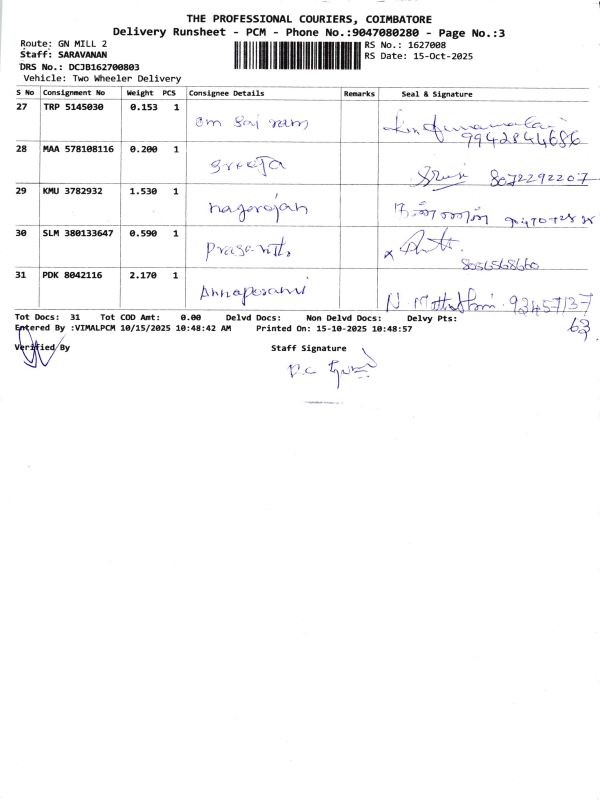 THE PROFESSIONAL COURIERS, COIMBATORE
Delivery Runsheet - PCM - Phone No.:9047080280 - Page No.:3
Route: GN MILL 2 RS No.: 1627008
Staff: SARAVANAN RS Date: 15-Oct-2025
DRS No.: DCJB162700803
Vehicle: Two Wheeler Delivery
S No Consignment No Weight PCS Consignee Details Remarks Seal & Signature
27 TRP 5145030 0.153 1
om sai ram
9942844686
28 MAA 578108116 0.200 1
sreeja
8072292207
29 KMU 3782932 1.530 1
nagarajan
30 SLM 380133647 0.590 1
Prasanth
8056568660
31 PDK 8042116 2.170 1
Annaporani
N 93457137
63
Tot Docs: 31 Tot COD Amt: 0.00 Delvd Docs: Non Delvd Docs: Delvy Pts:
Entered By :VIMALPCM 10/15/2025 10:48:42 AM Printed On: 15-10-2025 10:48:57
Verified By Staff Signature
P.C